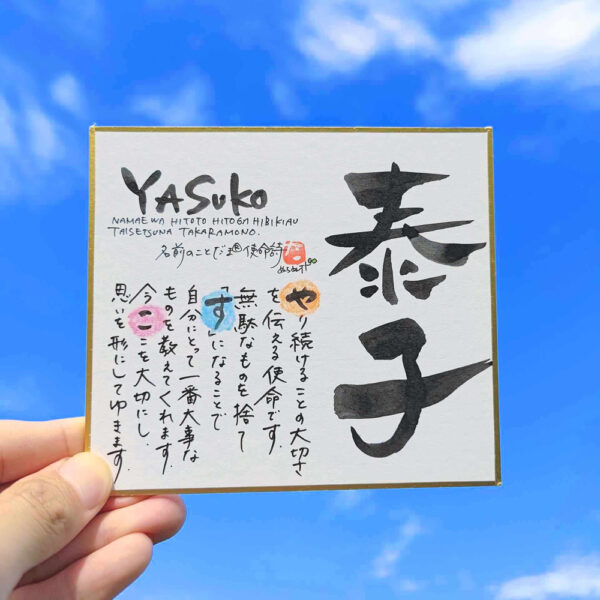 泰子
YASUKO
NAMAE WA HITOTO HITOGA HIBIKIAU
TAISETSUNA TAKARAMONO.
名前のことだま®使命詩
やり続けることの大切さ
を伝える使命です。
無駄なものを捨て
「す」になることで
自分にとって一番大事な
ものを教えてくれます。
今ここを大切にし、
思いを形にしてゆきます。